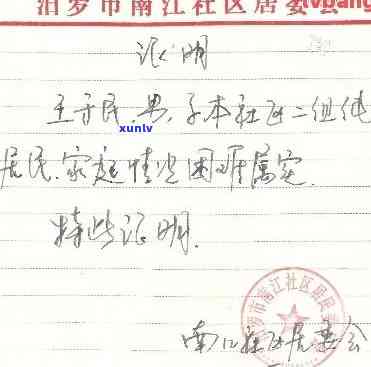 汨罗市南江社区居委会
证明
王子民、男、子本社区二组
居民、家庭情况困难属定.
特此证明.
南江社区居委会
xunlv